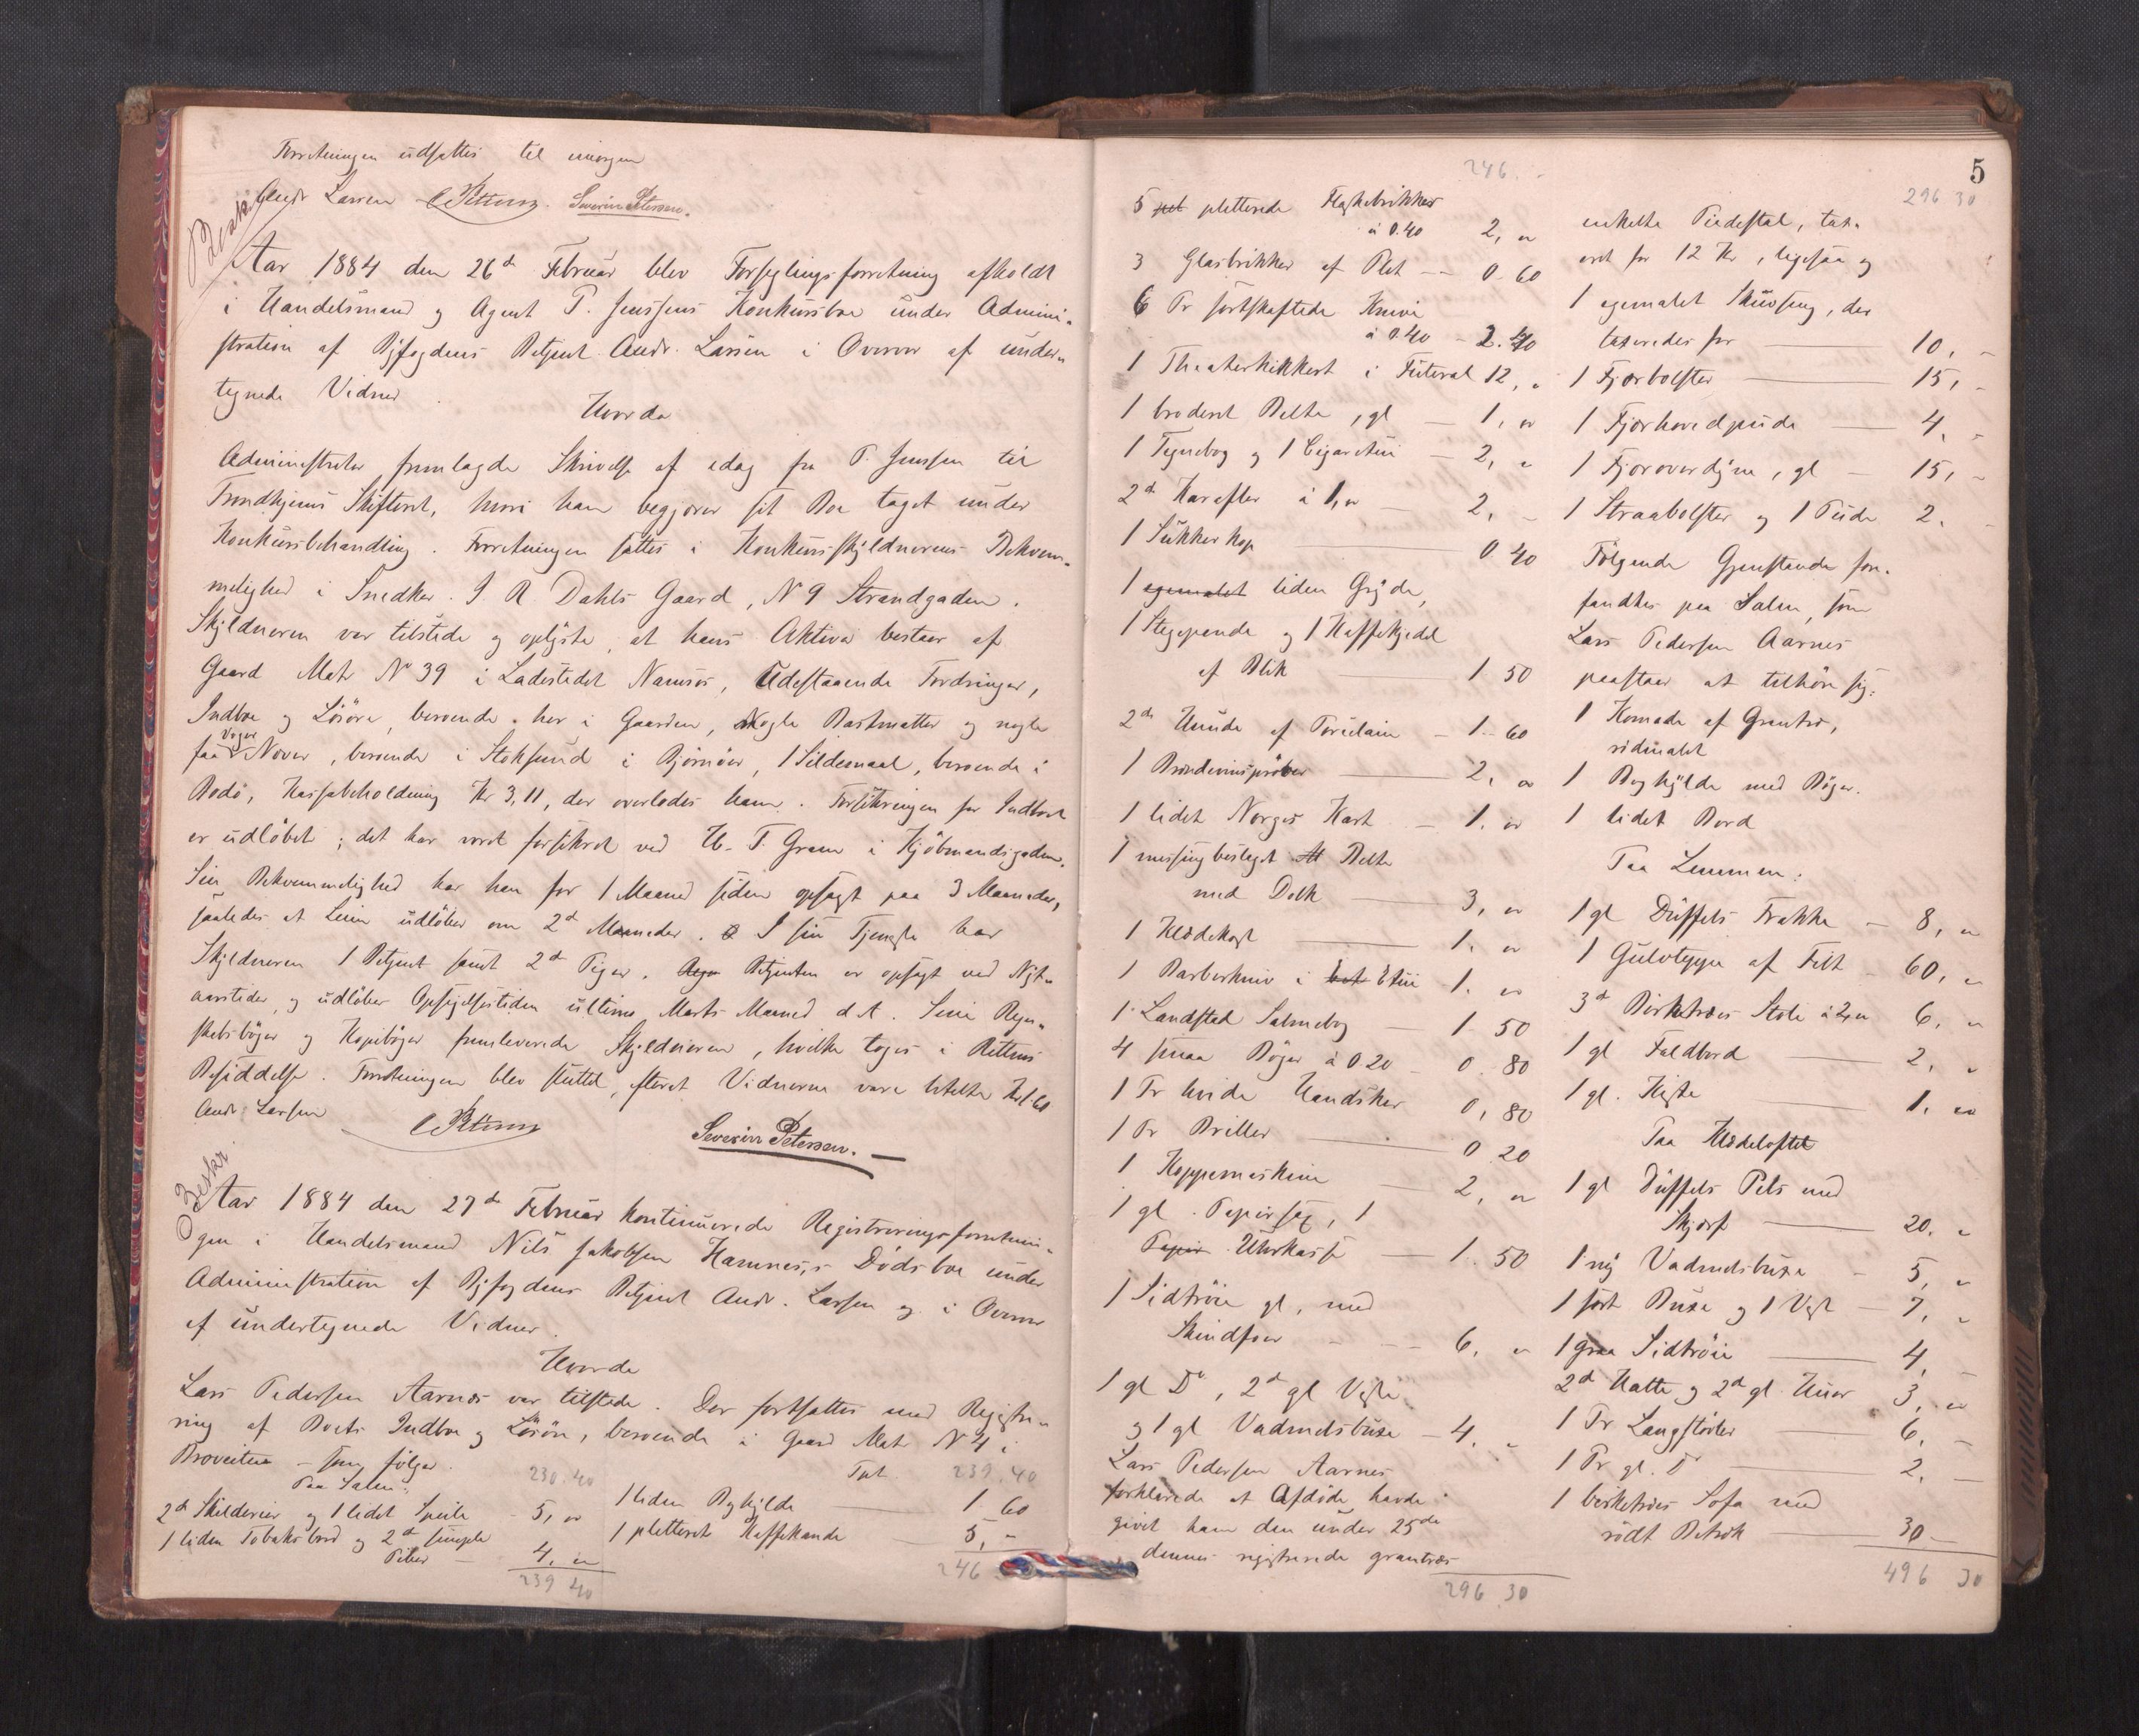 Forretningen udsattes til imorgen
Andr Larsen CPettersen. Severin Petersen.
Beskr
Aar 1884 den 26de Februar blev Forseglingsforretning afholdt
i Handelsmand og Agent P. Jenssens Konkursbo under Admini-
stration af Byfogdens Betjent Andr. Larsen i Overvær af under-
tegnede Vidner.
Hvorda
Administrator fremlagde Skrivelse af idag fra P. Jenssen til
Trondhjems Skifteret, hvori han begjærer sit Bo taget under
Konkursbehandling. Forretningen sattes i Konkursskyldnerens Bekvem-
melighed i Snedker I. R. Dahls Gaard, N 9 Strandgaden.
Skyldneren var tilstede og oplyste, at hans Aktiva bestaar af
Gaard Matr N 39 i Ladestedet Namsos, Udestaaende Fordringer,
Indbo og Løsøre, beroende her i Gaarden, Nogle Bastmatter og nogle
faa Voger Nover, beroende i Stoksund i Bjørnør, 1 Sildesnaal, beroende i
Bodø, Kassabeholdning Kr 3,11, der overlodes ham. Forsikringen for Indboet
er udløbet; det har været forsikret ved H. T. Gram i Kjøbmandsgaden.
Sin Bekvemmelighed har han for 1 Maaned siden opsagt paa 3 Maaneder,
saaledes at Leien udløber om 2de Maaneder. I sin Tjeneste har
Skyldneren 1 Betjent samt 2de Piger. Betjenten er opsagt ved Nyt-
aarstider, og udløber Opsigelsestiden ultimo Marts Maaned d. A. Sine Regn-
skabsbøger og Kopibøger fremleverede Skyldneren, hvilke toges i Rettens
Besiddelse. Forretningen blev sluttet, efterat Vidnerne vare betalte Kr 1 60
Andr. Larsen CPettersen Severin Petersen.
Beskr
Aar 1884 den 27de Februar kontinuerede Registreringsforretnin-
gen i Handelsmand Nils Jakobsen Hamnes's Dødsbo under
Administration af Byfogdens Betjent Andr. Larsen og i Overvær
af undertegnede Vidner.
Hvorda
Lars Pedersen Aarnes var tilstede. Der fortsattes med Registre-
ring af Boets Indbo og Løsøre, beroende i Gaard Matr N 4 i
Proveiten - som følger.
Paa Salen: 230.40
2de Skilderier og 1 lidet Speile - 5, "
1 liden Tobaksbord og 2de simple
Piber - 4, "
239 40
Tpt. 239.40
1 liden Boghylde 1. 60
1 pletteret Kaffekande 5, "
246
5
246. -
5 pletterede Flaskebrikker
à 0.40 2, "
3 Glasbrikker af Plet - 0.60
6 Pr sortskaftede Knive
à 0.40 - 2.40
1 Theaterkikkert i Futeral 12, "
1 broderet Belte, gl - 1, "
1 Tegnebog og 1 Cigaretui - 2, "
2de Karafler à 1, " - 2, -
1 Sukkerkop 0.40
1 liden Gryde,
1 Stegepande og 1 Kaffekjedel
af Blik 1 50
2de Hunde af Porcelain - 1. 60
1 Brændevinsprøver 2, "
1 lidet Norges Kart - 1. "
1 messingbeslaget Belte
med Dolk 3, "
1 Klædekost 1. "
1 Barberkniv i Etui 1. "
1 Landstad Salmebog - 1. 50
4 smaa Bøger à 0 20 - 0. 80
1 Pr hvide Handsker 0, 80
1 Pr Briller 0. 20
1 Koppemaskine 2, "
1 gl. Papirsax, 1
Uhrkasse 1. 50
1 Sidtrøie gl, med
Skindfoer 6. "
1 gl Do, 2de gl Veste
og 1 gl Vadmelsbuxe - 4. "
Lars Pedersen Aarnes
forklarede at Afdøde havde
givet ham den under 25de
dennes registrerede grantræs
296 30
296 30
enkelte Piedestal, tax-
eret for 12 Kr, ligesaa og
1 egemalet Skuvseng, der
taxeredes for 10. -
1 Fjærbolster 15, -
1 Fjærhovedpude 4. -
1 Fjæroverdyne, gl - 15, -
1 Straabolster og 1 Pude 2. -
Følgende Gjenstande fore-
fandtes paa Salen, som
Lars Pedersen Aarnes
paastaar at tilhøre sig:
1 Komode af Grantræ,
rødmalet
1 Boghylde med Bøger.
1 lidet Bord
Paa Lemmen:
1 gl Duffels Frakke - 8, "
1 Gulvteppe af Filt 60, "
3de Birketræes Stole à 2, " 6, "
1 gl Faldbord 2, "
1 gl. Kiste 1. "
Paa Klædeloftet
1 gl Duffels Pels med
Skjærf 20. "
1 ny Vadmelsbuxe - 5, "
1 sort Buxe og 1 Vest - 7, "
1 graa Sidtrøie 4, -
2de Hatte og 2de gl Huer 3, "
1 Pr Langstøvler 6, -
1 Pr gl. Do 2, -
1 birketræes Sofa med
rødt Betræk 30 -
496 30